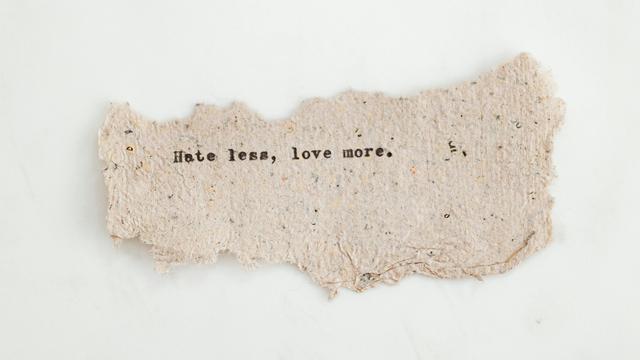 Hate less, love more.